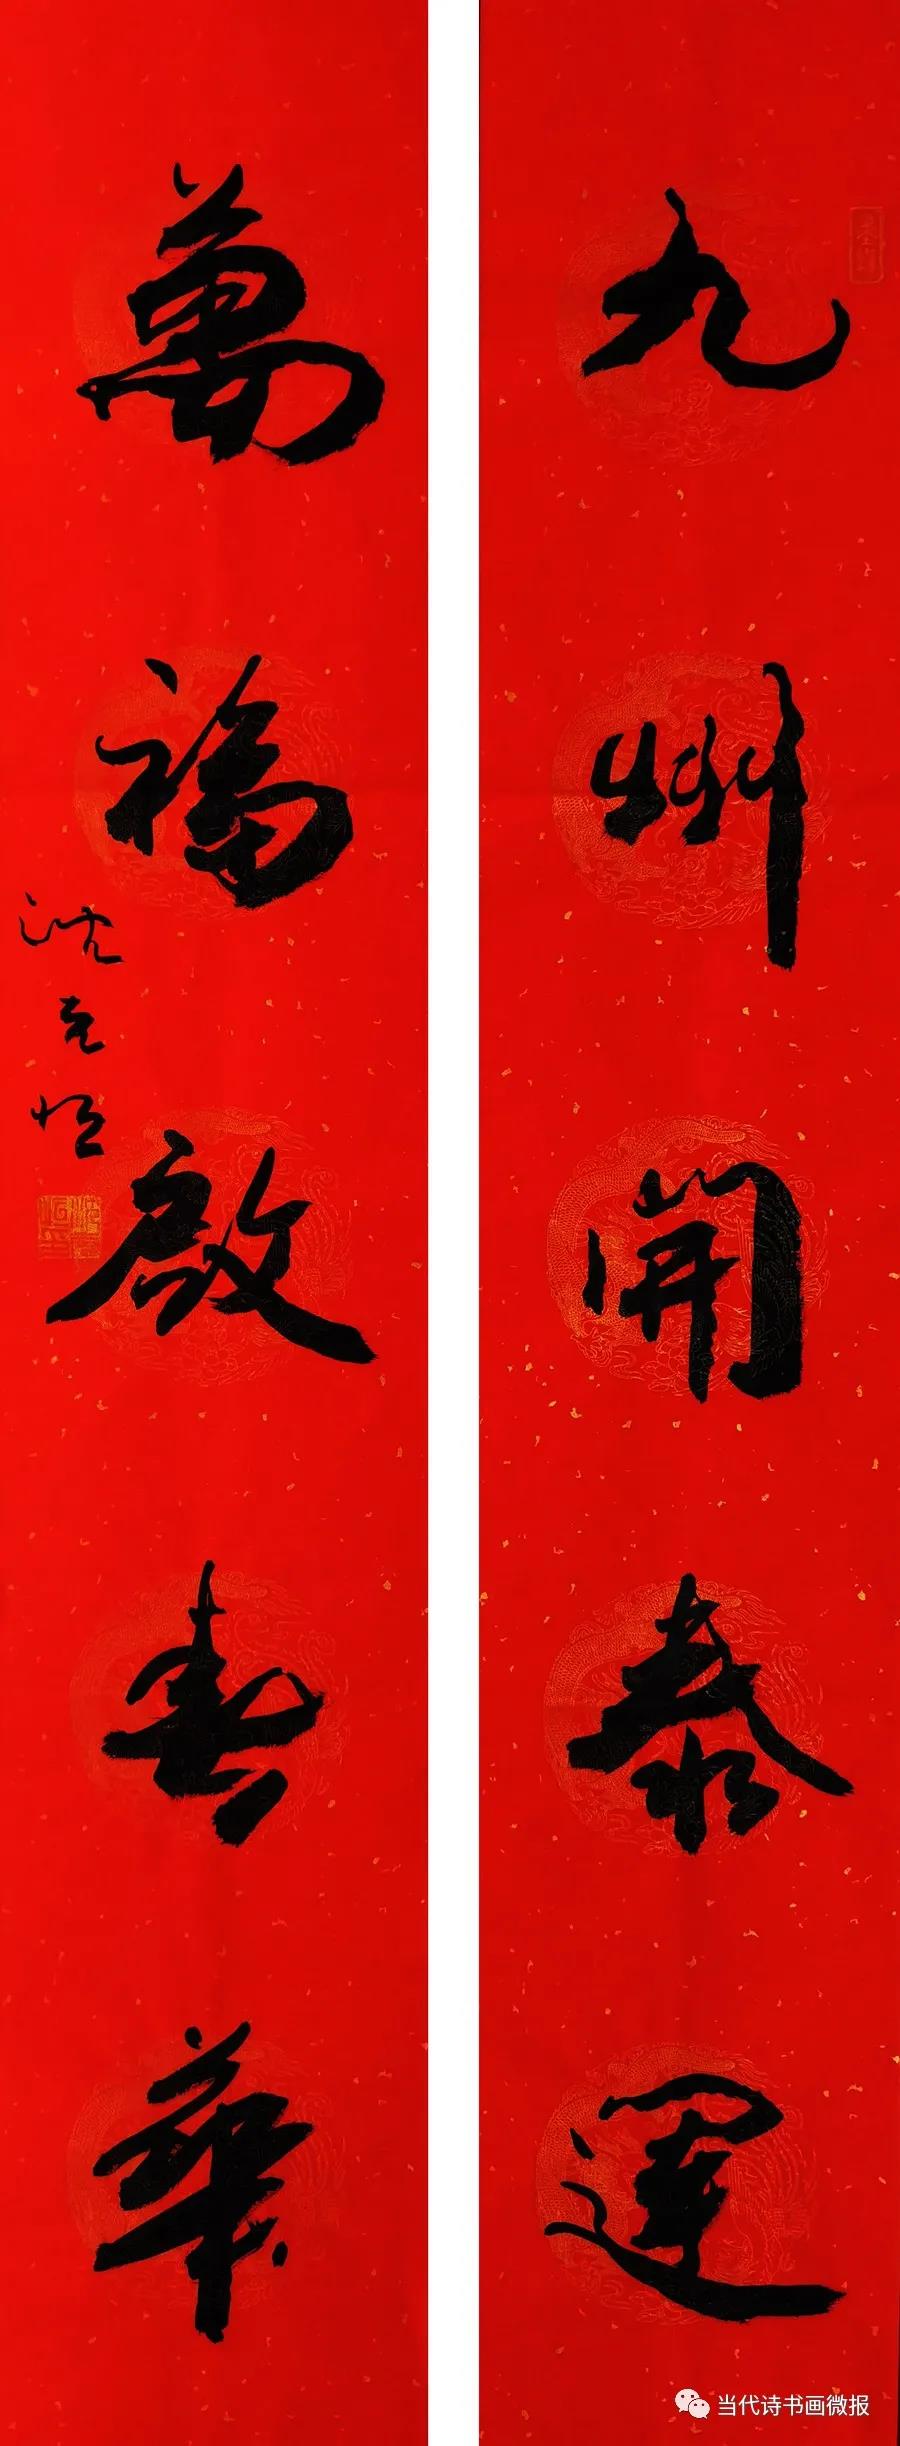 九州開泰運
萬福啟春華
沈克恒
当代诗书画微报